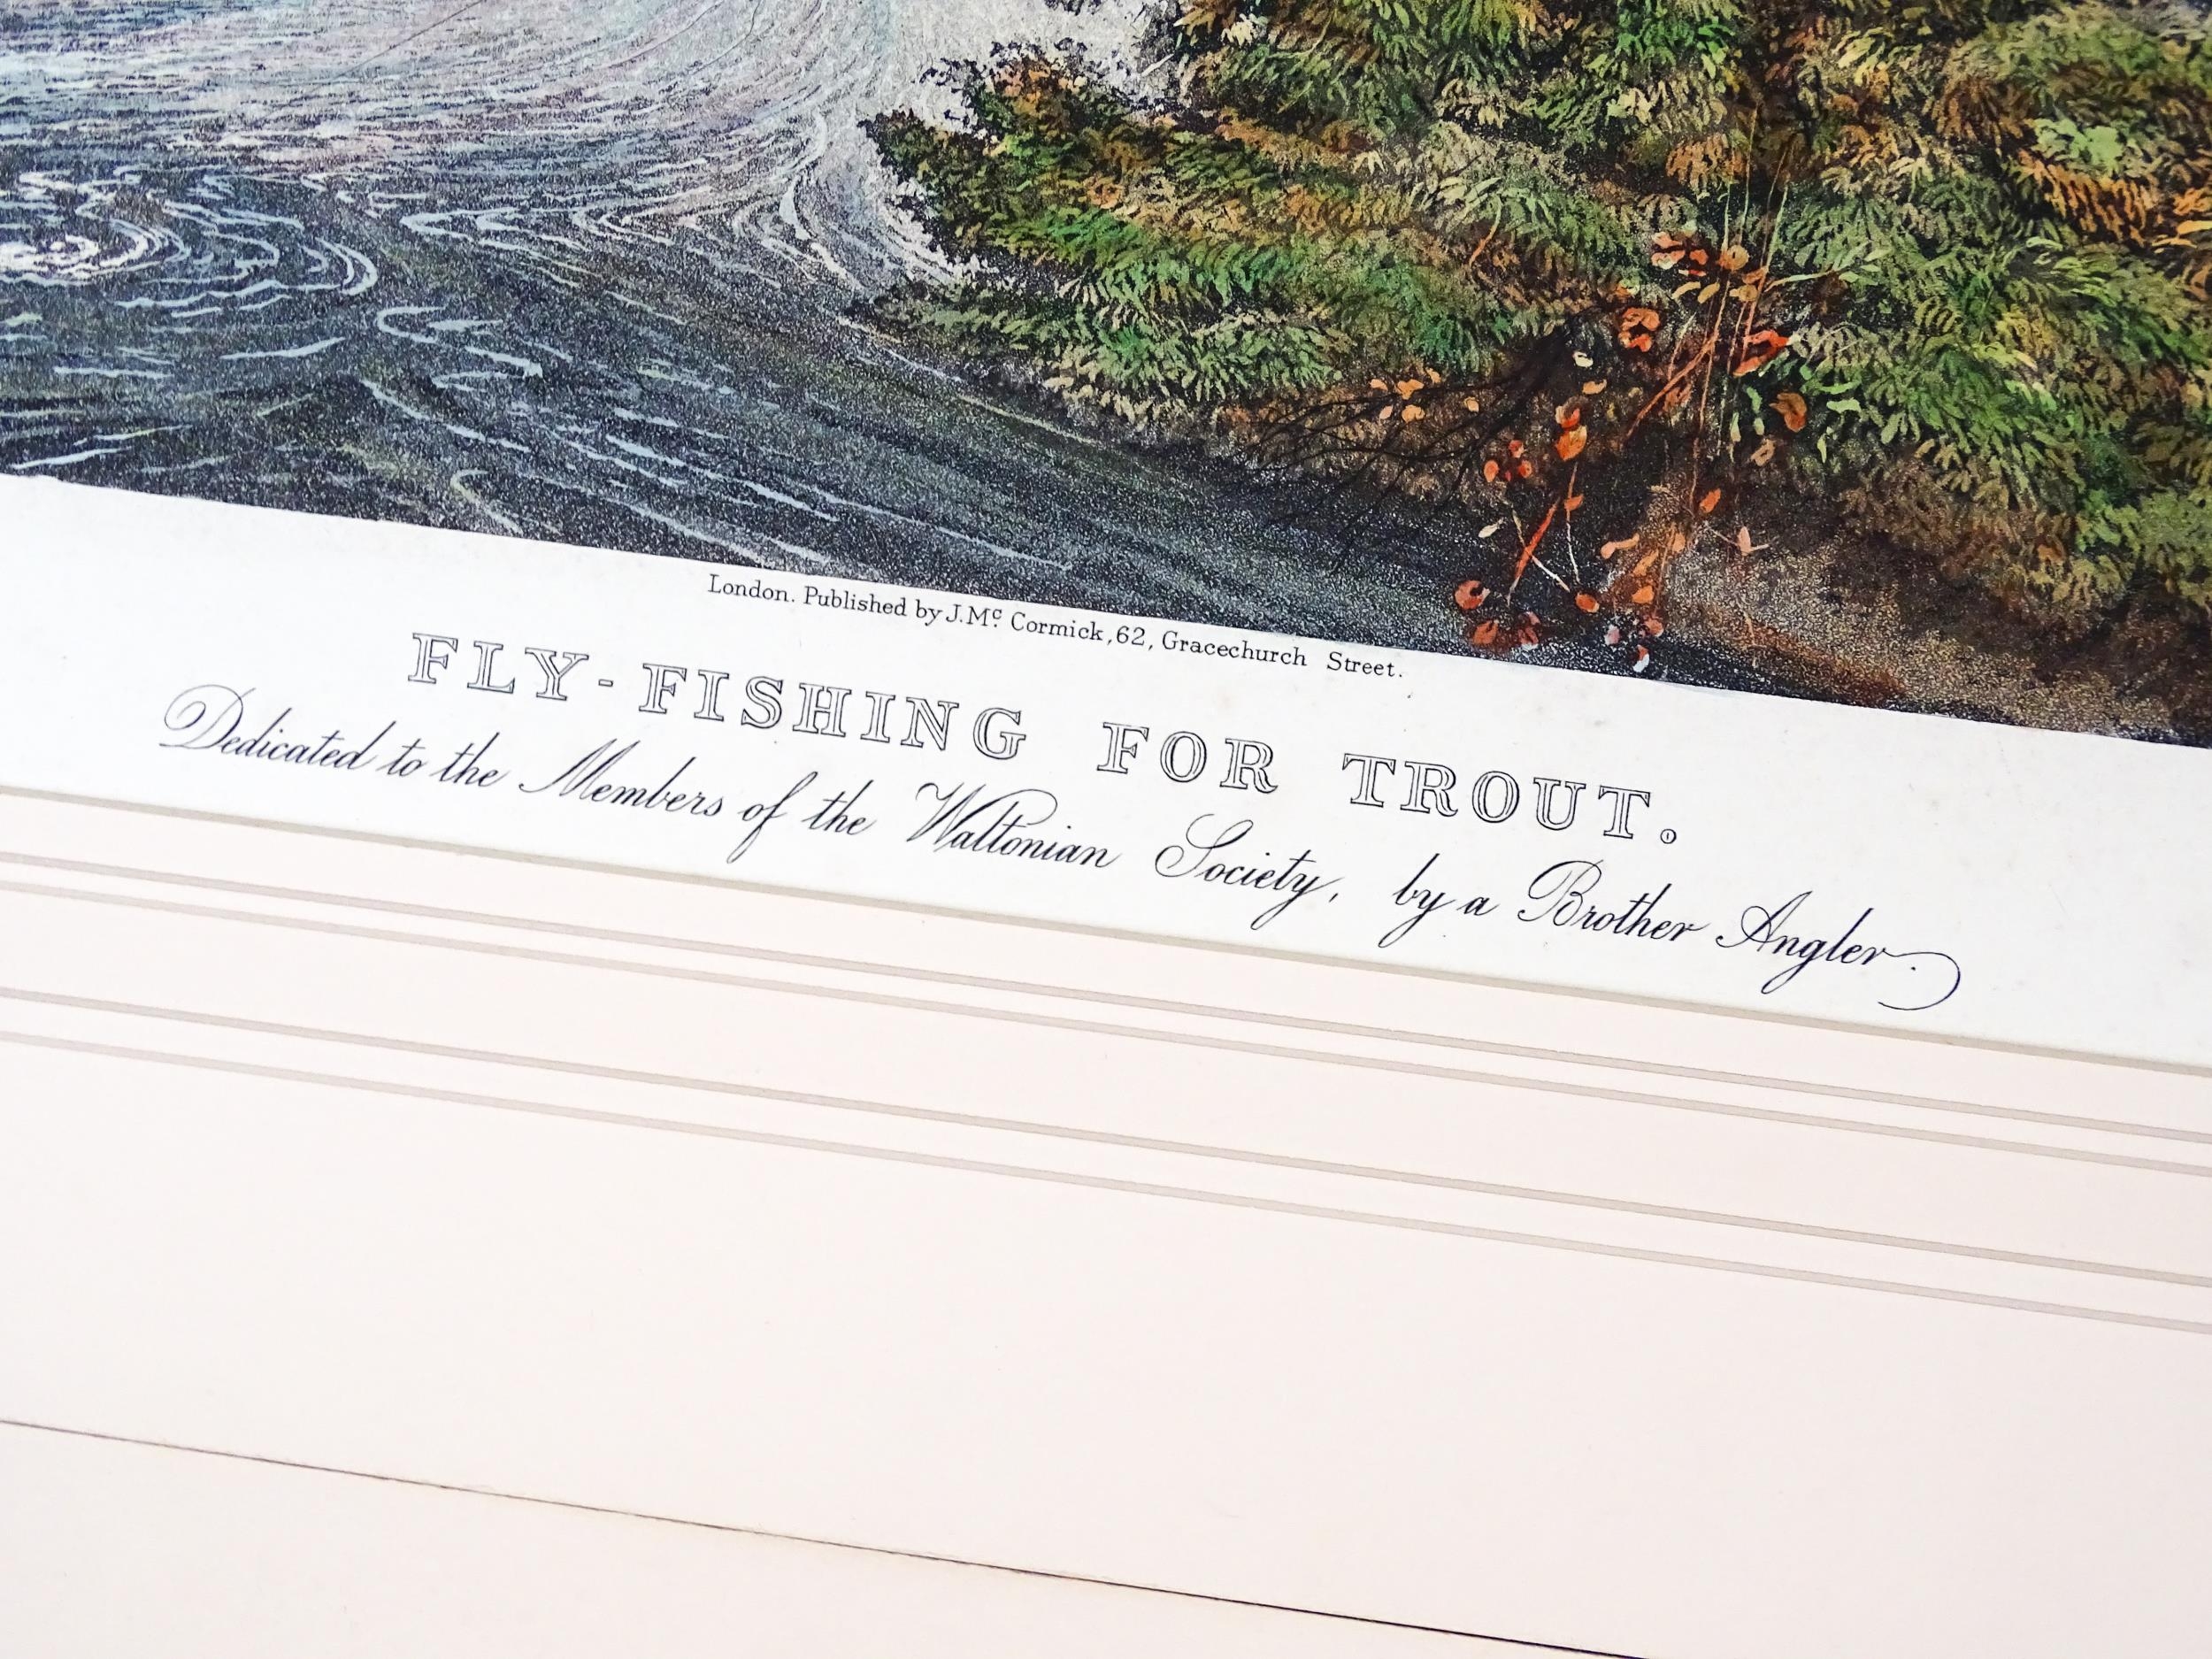 London. Published by J. Mc. Cormick, 62, Gracechurch Street.
FLY-FISHING FOR TROUT.
Dedicated to the Members of the Waltonian Society, by a Brother Angler.